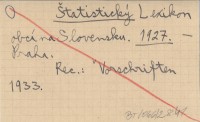 Štatistický Lexikon
obcí na Slovensku. 1927. —
Praha.
Rec.: Vorschriften
1933.